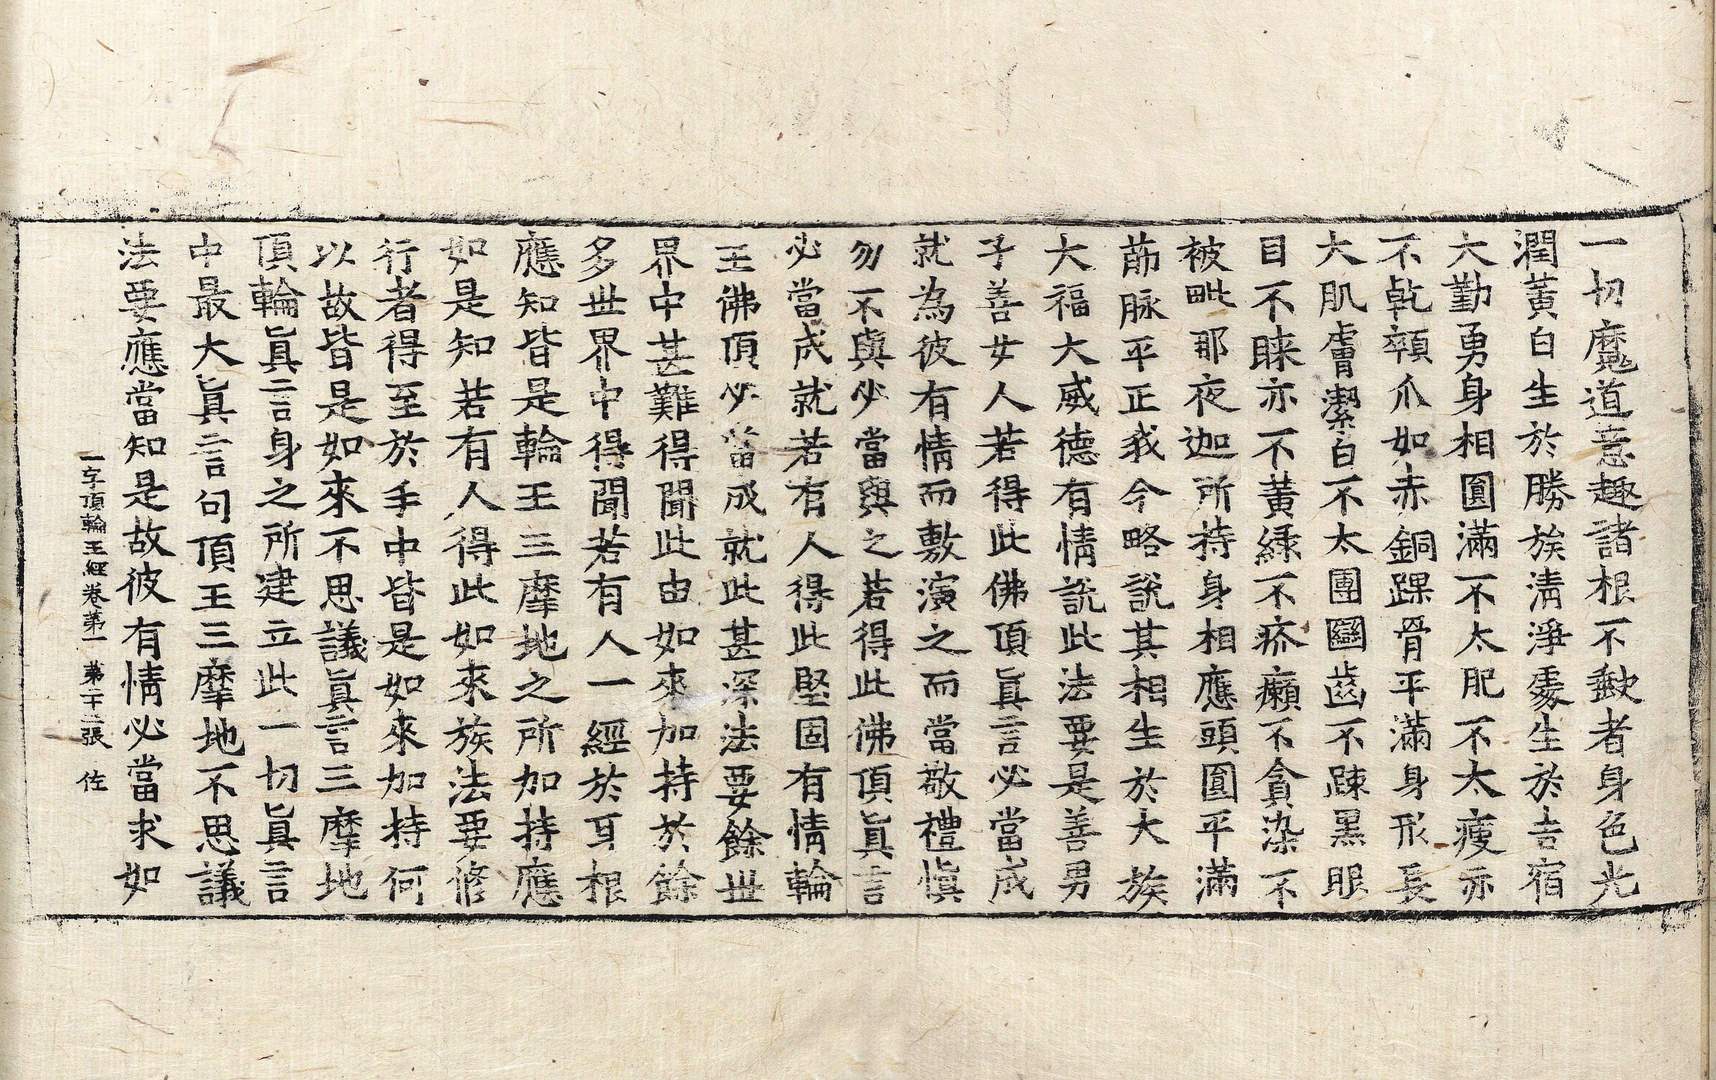 一切魔道意趣諸根不缺者身色光
潤黃白生於勝族淸淨處生於吉宿
大勤勇身相圓滿不太肥不太瘦亦
不乹顇爪如赤銅踝骨平滿身形長
大肌膚潔白不太團圞齒不踈黑眼
目不睞亦不黃綠不疥癩不貪染不
被毗那夜迦所持身相應頭圓平滿
莭脉平正我今略說其相生於大族
大福大威德有情說此法要是善男
子善女人若得此佛頂眞言必當成
就為彼有情而敷演之而當敬禮愼
勿不與必當與之若得此佛頂眞言
必當成就若有人得此堅固有情輪
王佛頂必當成就此甚深法要餘世
界中甚難得聞此由如來加持於餘
多世界中得聞若有人一經於耳根
應知皆是輪王三摩地之所加持應
如是知若有人得此如來族法要修
行者得至於手中皆是如來加持何
以故皆是如來不思議眞言三摩地
頂輪眞言身之所建立此一切眞言
中最大眞言句頂王三摩地不思議
法要應當知是故彼有情必當求如
一字頂輪王經卷第一 第二十二張 佐